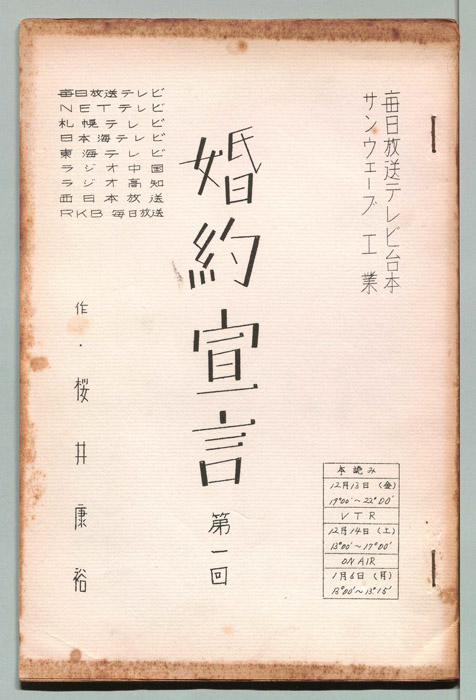 毎日放送テレビ台本
サンウェーブ工業
婚約宣言 第一回
毎日放送テレビ
NETテレビ
札幌テレビ
日本海テレビ
東海テレビ
ラジオ中国
ラジオ高知
西日本放送
RKB毎日放送
作・桜井康裕
本読み
12月13日(金)
19°00'~22°00'
VTR
12月14日(土)
13°00'~17°00'
ON AIR
1月6日(月)
13°00'~13°15'